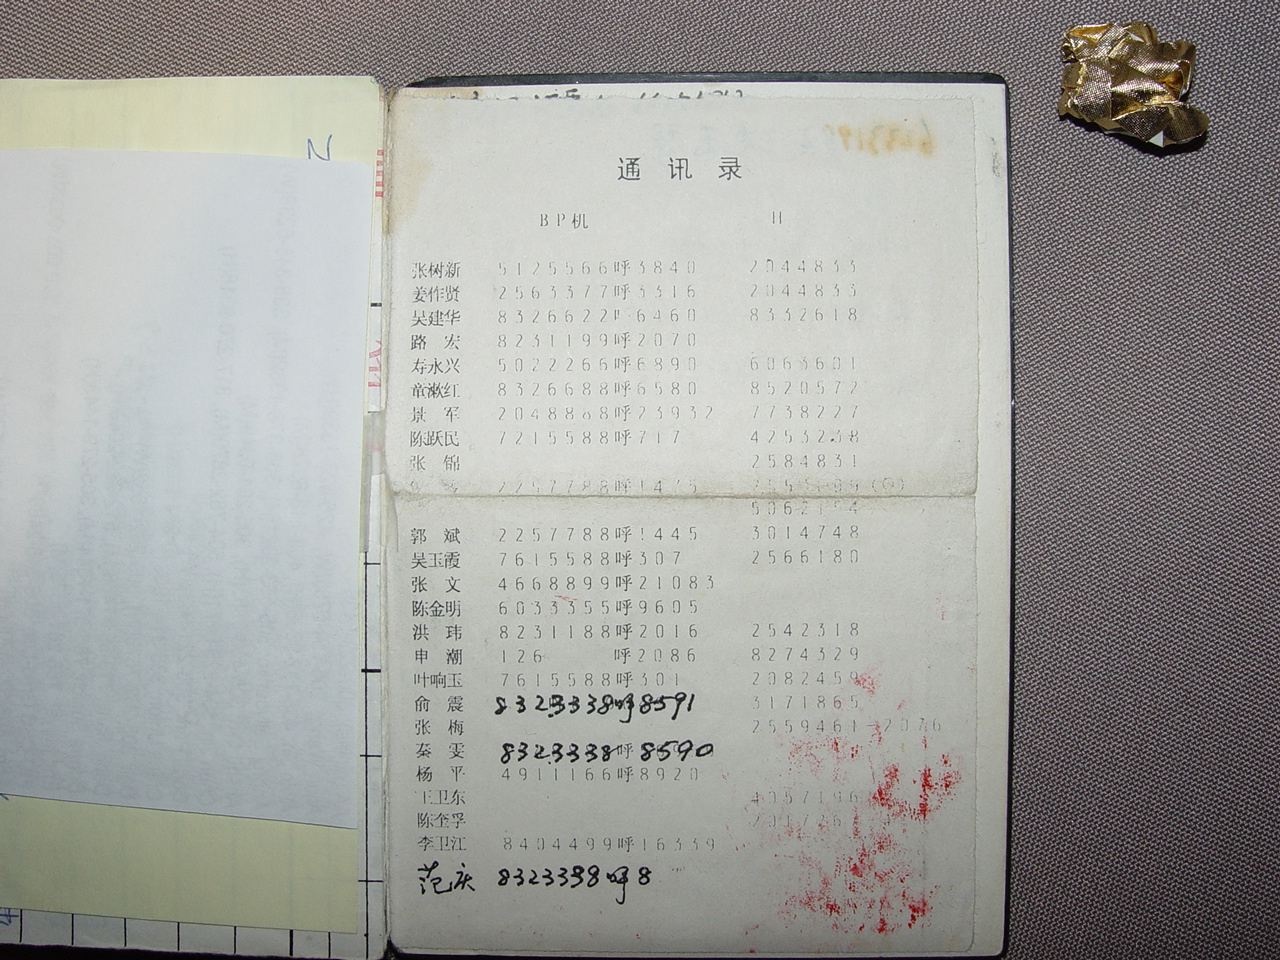 通讯录
BP机 H
张树新 5125566呼3840 2044833
姜作贤 2563377呼3316 2044833
吴建华 8326622呼6460 8332618
路宏 8231199呼2070
寿永兴 5022266呼6890 6063601
童漱红 8326688呼6580 8520572
景军 2048868呼23932 7738227
陈跃民 7215588呼717 4253238
张锦 2584831
2257788呼1435
5062154
郭斌 2257788呼1445 3014748
吴玉霞 7615588呼307 2566180
张文 4668899呼21083
陈金明 6033355呼9605
洪玮 8231188呼2016 2542318
申潮 126 呼2086 8274329
叶响玉 7615588呼301 2082459
俞震 8323338呼8591 3171865
张梅 2559461-2076
秦雯 8323338呼8590
杨平 4911166呼8920
王卫东
陈奎孚
李卫江 8404499呼16339
范庆 8323338呼8